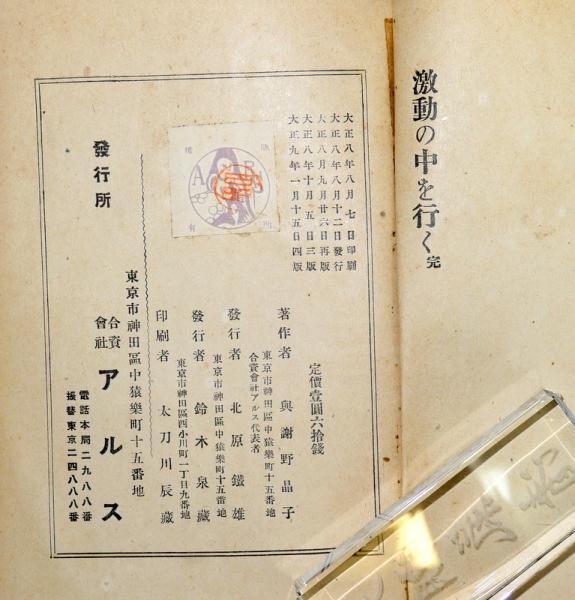 激動の中を行く 完
大正八年八月七日印刷
大正八年八月十二日發行
大正八年九月廿六日再版
大正八年十月五日三版
大正九年一月十五日四版
定價壹圓六拾錢
著作者 與謝野晶子
東京市神田區中猿樂町十五番地
合資會社アルス代表者
發行者 北原鐵雄
東京市神田區中猿樂町十五番地
發行者 鈴木泉藏
東京市神田區西小川町一丁目九番地
印刷者 太刀川辰藏
東京市神田區中猿樂町十五番地
發行所 合資會社 アルス
電話本局二九八八番
振替東京二四八八八番